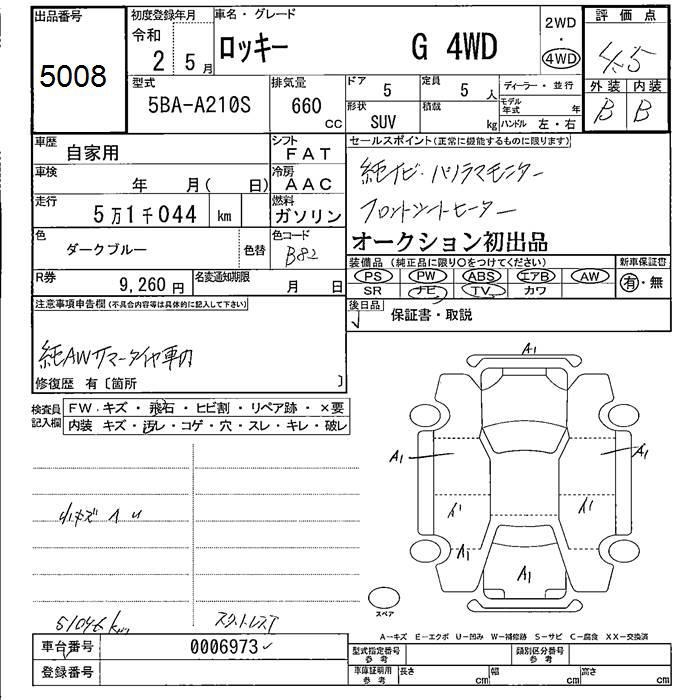 出品番号 初度登録年月 車名・グレード 2WD 評価点
5008 令和 2 5月 ロッキー G 4WD ・ 4WD 4.5
型式 排気量 ドア 定員 ディーラー・並行 外装 内装
5BA-A210S 660 cc 5 5人 モデル年式 年 B B
形状 SUV 積載 kg ハンドル 左・右
車歴 自家用 シフト FAT セールスポイント(正常に機能するものに限ります)
車検 年 月( 日) 冷房 AAC 純ナビ・パノラマモニター
走行 5万1千044 km 燃料 ガソリン フロントシートヒーター
色 ダークブルー 色替 色コード B82 オークション初出品
R券 9,260円 名変通知期限 月 日 装備品(純正品に限り○をつけてください) 新車保証書
PS PW ABS エアB AW 有・無
SR ナビ TV カワ
注意事項申告欄(不具合内容等は具体的に記入して下さい) 後日品 保証書・取説
純AWサマータイヤ車内
修復歴 有〔箇所 〕
検査員記入欄 FW.キズ・飛石・ヒビ割・リペア跡・×要
内装 キズ・汚レ・コゲ・穴・スレ・キレ・破レ
A1
A1 A1
A1 A1
小キズ A U
A1 A1 A1
スペア
51046km
A−キズ E−エクボ U−凹み W−補修跡 S−サビ C−腐食 XX−交換済
車台番号 0006973 型式指定番号 参考 類別区分番号 参考
登録番号 車庫証明用 参考 長さ cm 幅 cm 高さ cm